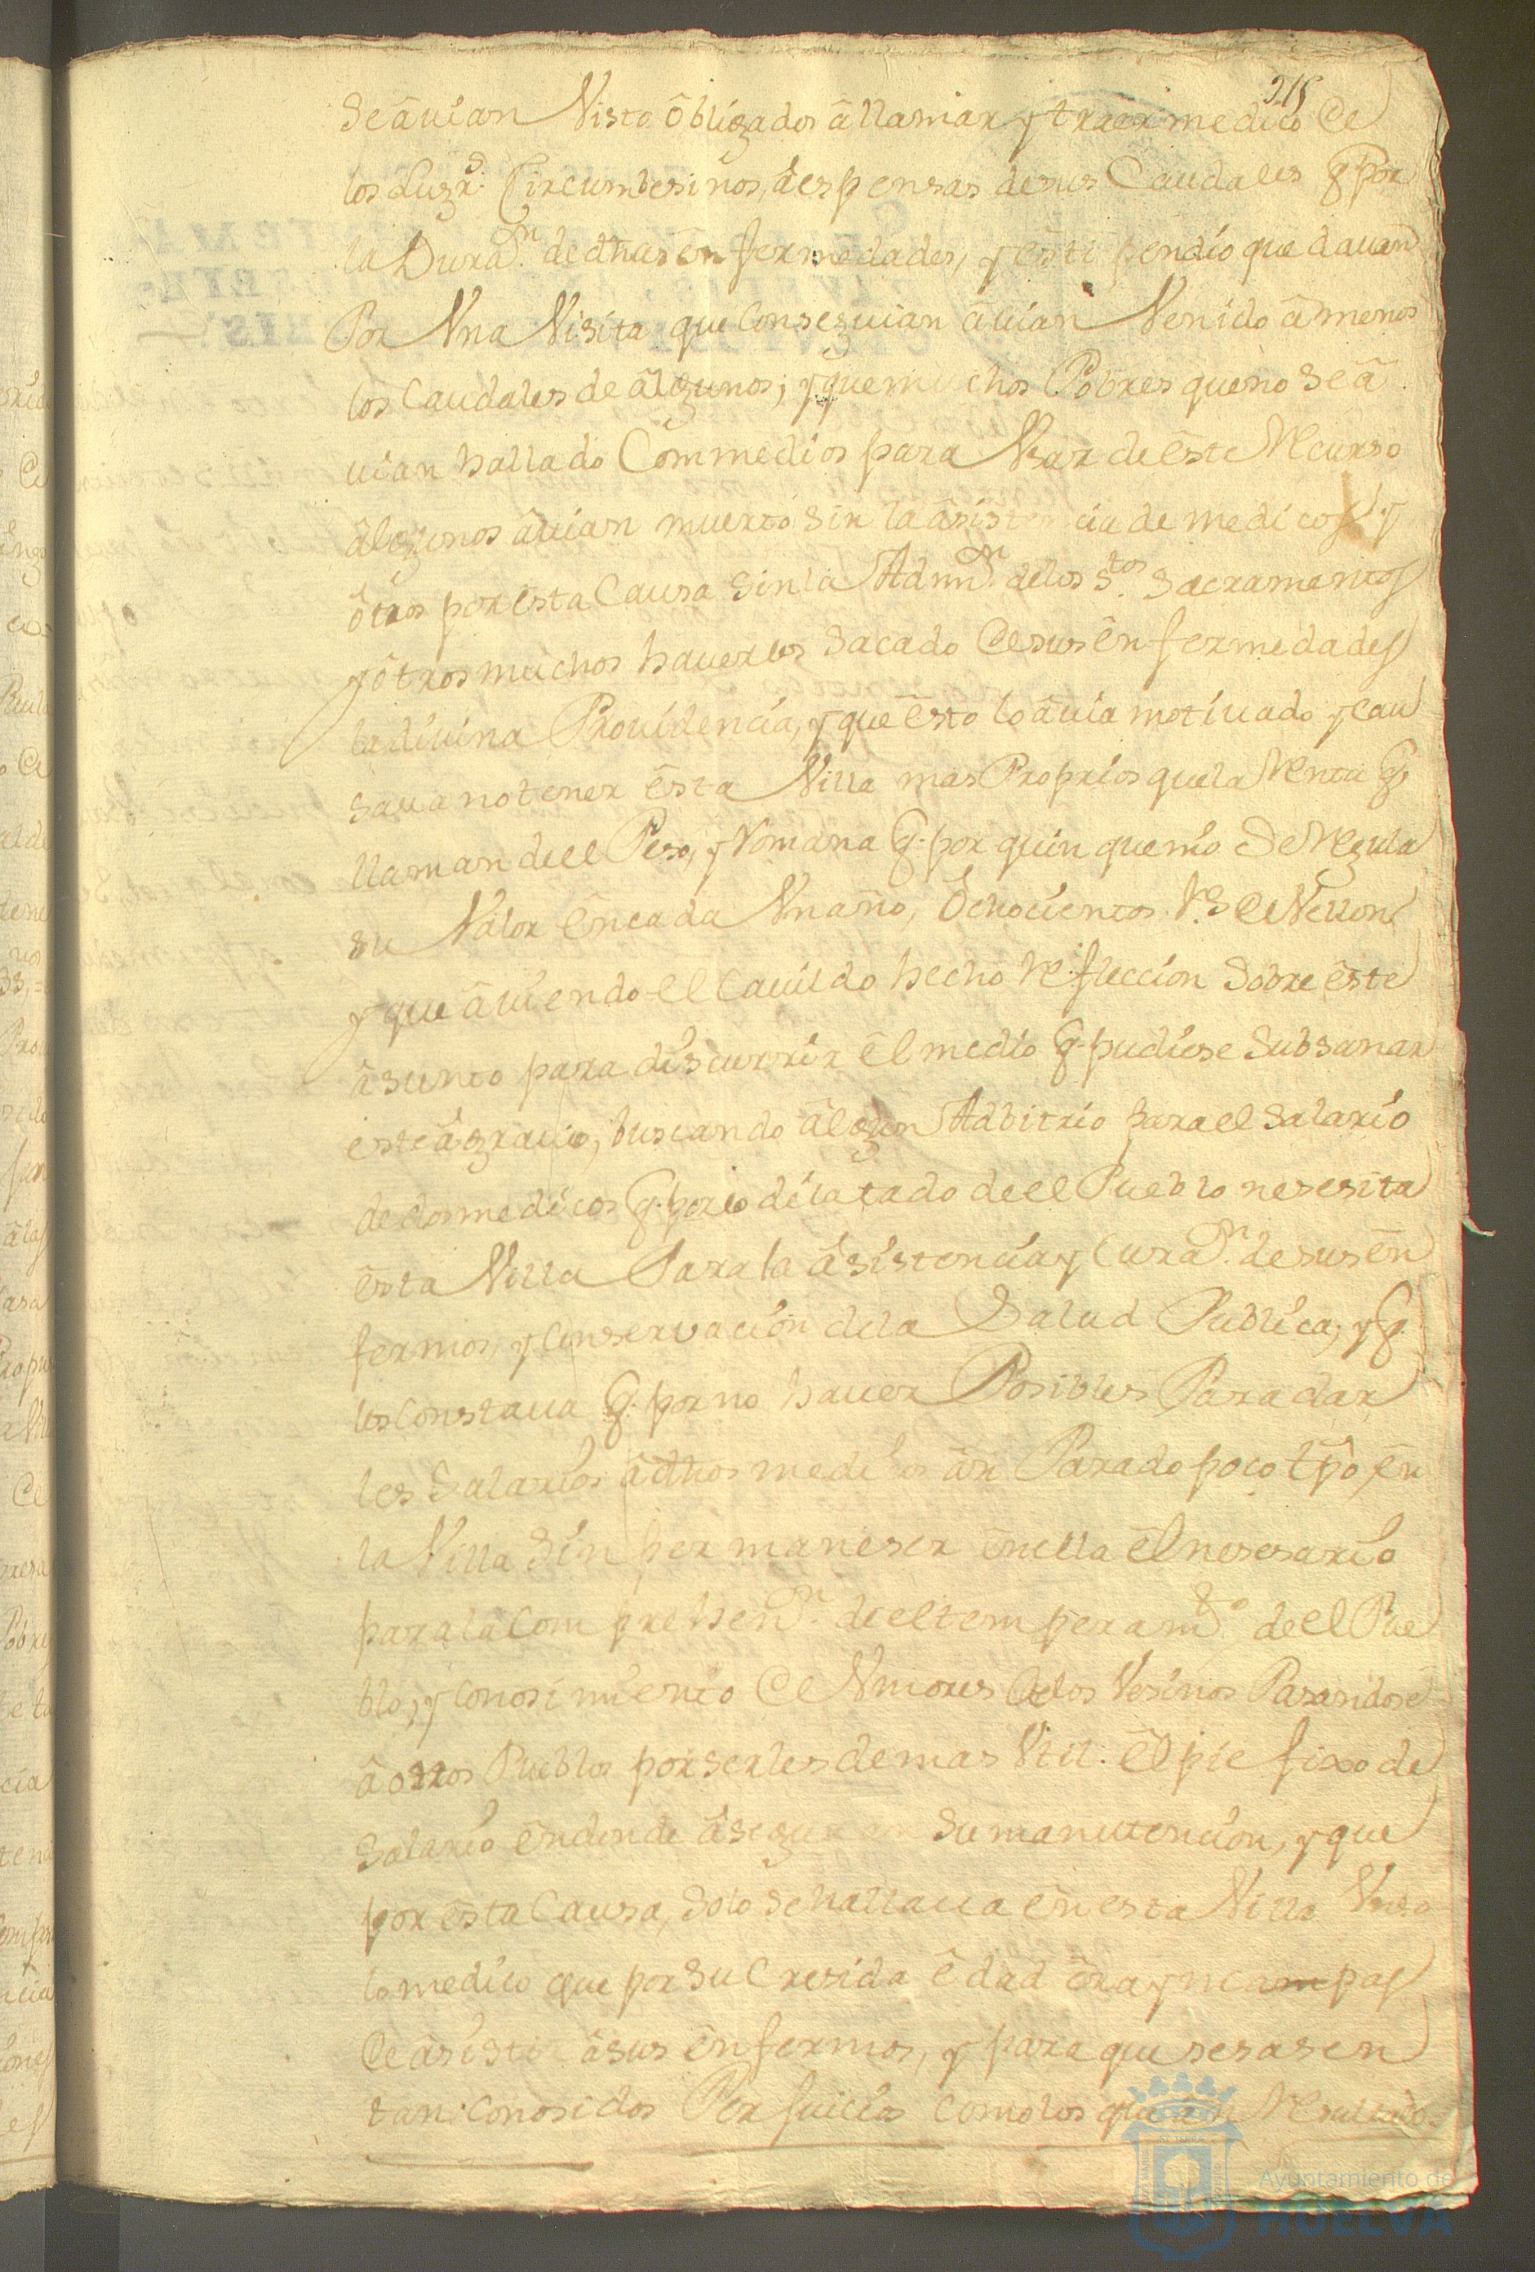 215
se âuian Visto ôbligados â llamar y traer medico de
los Lugrs. Circumbesinos, â espensas de sus Caudales q por
la Duraon. de dhas enfermedades, y êstipendio que dauan
Por Vna Visita que Conseguian âuian Venido â menos
los Caudales de âlgunos; y que muchos Pobres que no se â
uian hallado Com medios para Vsar de êste Recurso
âlgunos âuian muerto sin la âsistencia de medicos y
ôtros por êsta Causa sin la Admon. de los Stos. Sacramentos
y ôtros muchos hauerlos sacado de sus ênfermedades
la diuina Prouidencia, y que êsto lo âuia motiuado y cau
saua no tener êsta Villa mas Proprios que la Renta q.
llaman de el Peso, y Romana q. por quinquenio se Regula
su Valor ên cada Vn año, Ochocientos Rs. de Vellon
y que âuiendo el Cauildo hecho Refleccion sobre êste
âsunto para discurrir êl medio q. pudiese subsanar
este âgrauio, buscando âlgun Adbitrio para el salario
de dos medicos q. por lo dilatado de el Pueblo nesesita
êsta Villa Para la âsistencia y Curaon. de sus ên
fermos, y Conservacion de la Salud Publica; y q.
les Constaua q. por no hauer Posibles Para dar
les Salarios â dhos medicos ân Parado poco tpo, ên
la Villa Sin permaneser ên ella êl nesesario
para la Comprehenon. de el temperamto. de el Pue
blo, y Conosimiento de Vmores de los Vesinos Pasandose
â otros Pueblos por serles de mas Vtil. êl pie fixo de
Salario ên donde âsegurar su manutencion, y que
por êsta Causa, solo se hallaua ên esta Villa Vn so
lo medico que por su Cresida êdad êra yncampas
de âsistir â sus ênfermos, y para que sesasen
tan Conosidos Perjuicios como los que ân Resultado
Ayuntamiento de
HUELVA